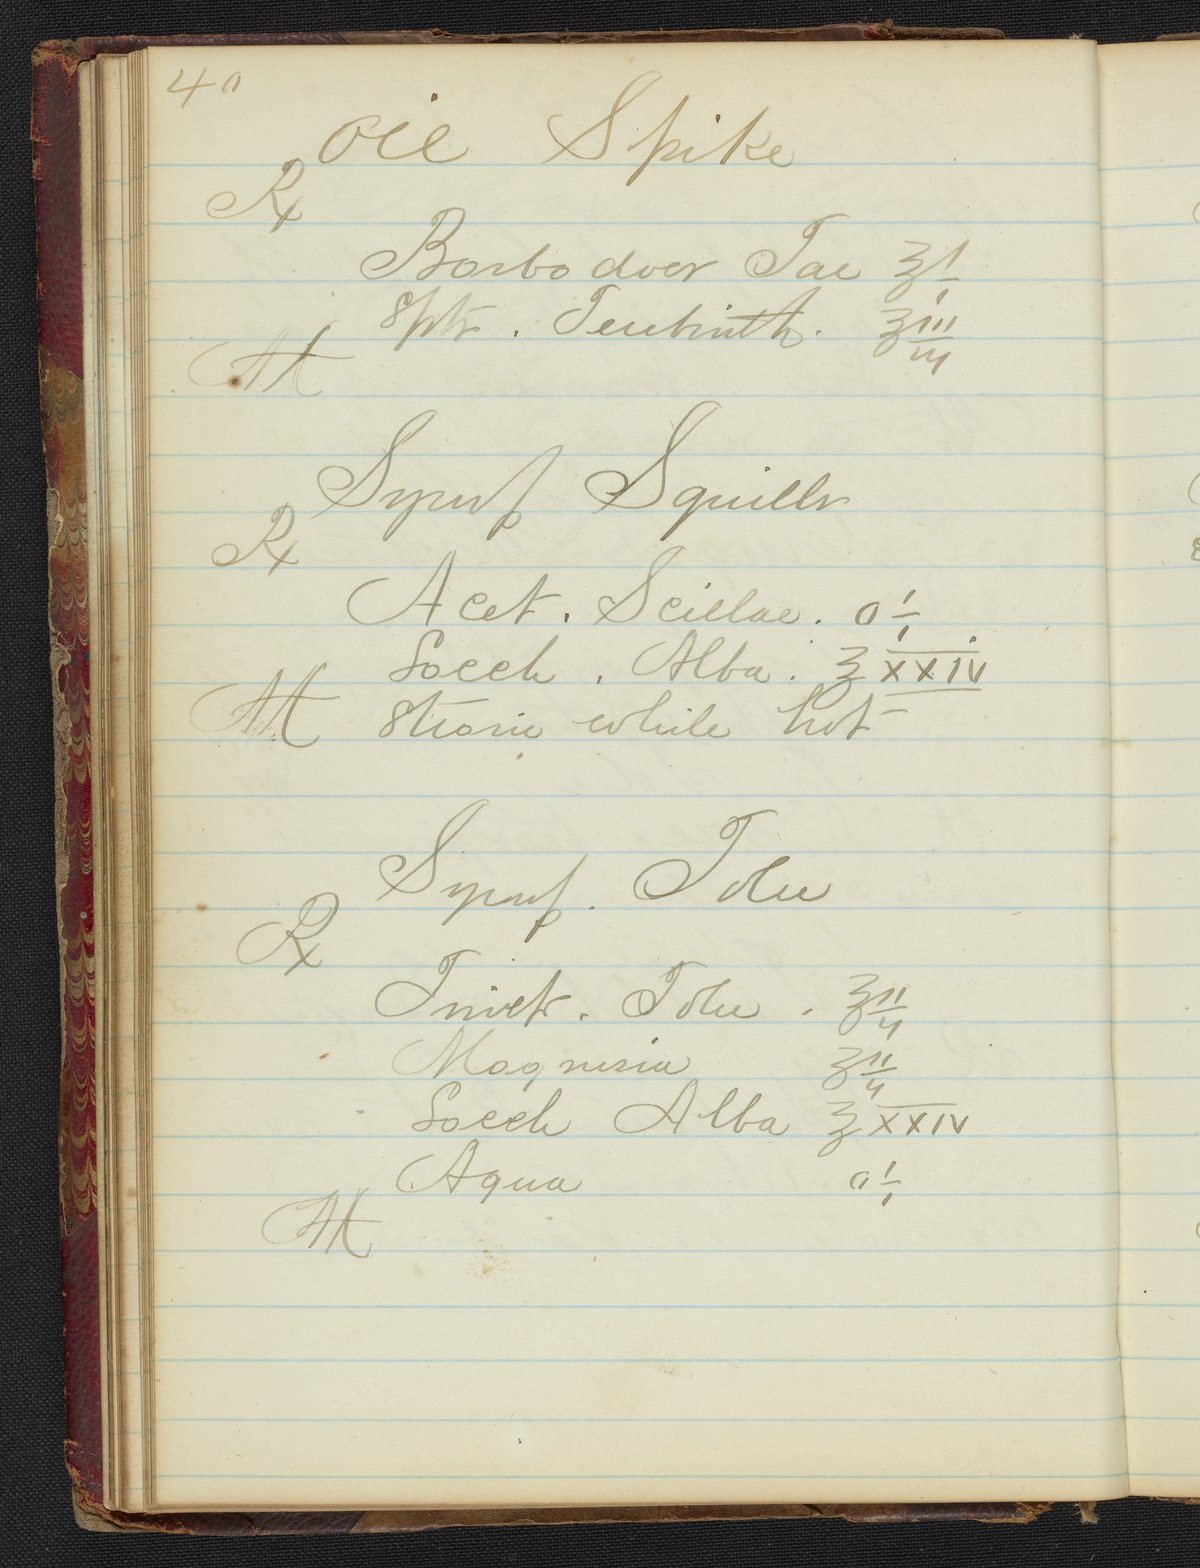 40
Oil Spike
℞
Barbadoer Tar ℥ i
Sptr. Terebinth. ℥ iii
M
Syrup Squills
℞
Acet. Scillae. O i
Sacch. Alba. ℥ XXIV
M Strain while hot
Syrup. Tolu
℞
Tinct. Tolu. ℥ ii
Magnesia ℥ ii
Sacch Alba ℥ XXIV
Aqua O i
M